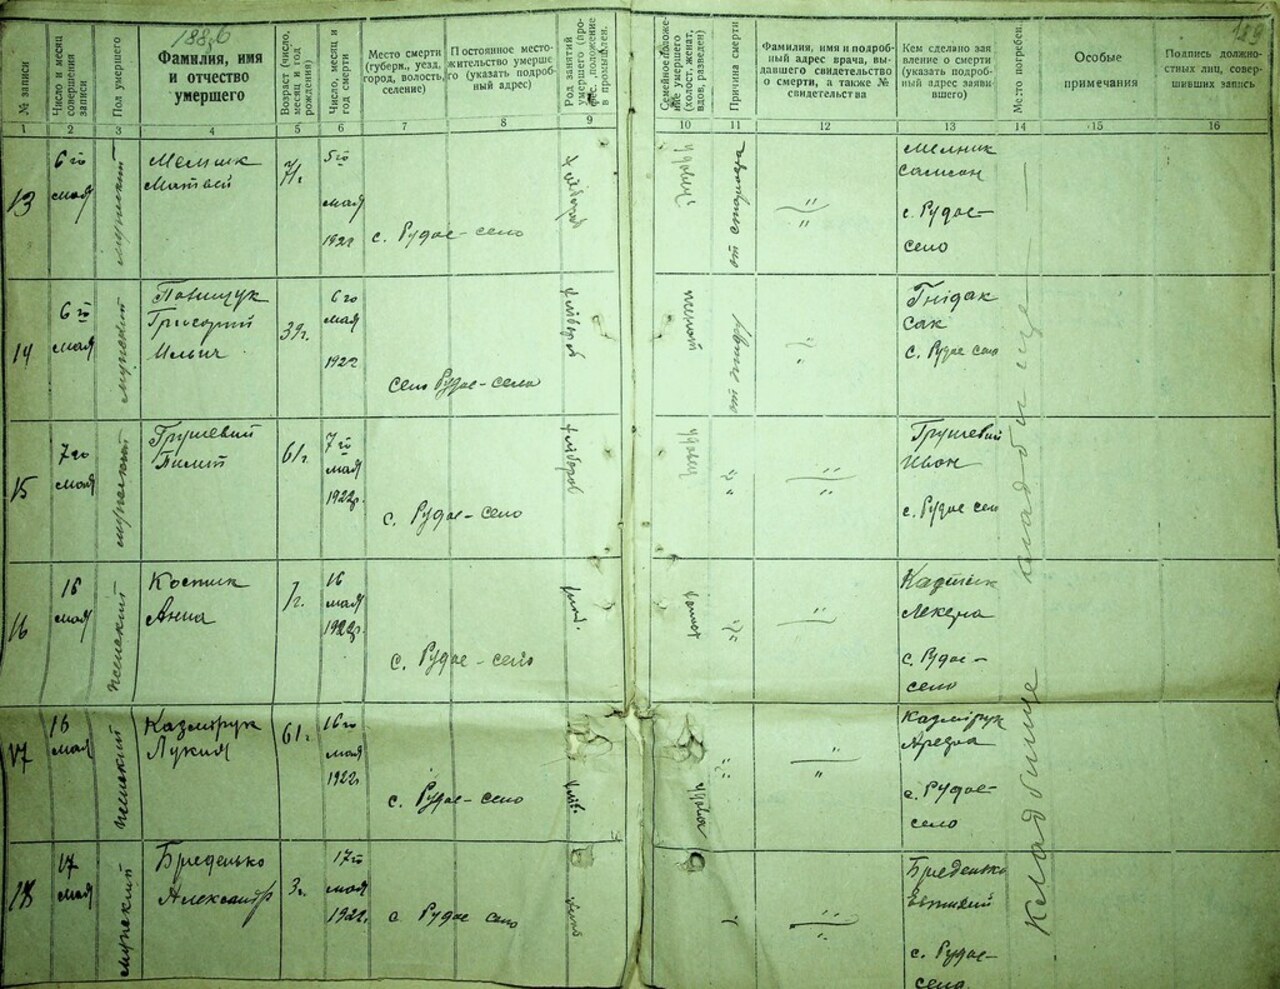 1886
129
№ записи
Число и месяц совершения записи
Пол умершего
Фамилия, имя и отчество умершего
Возраст (число, месяц и год рождения)
Число, месяц и год смерти
Место смерти (губерн., уезд, город, волость, селение)
Постоянное местожительство умершего (указать подробный адрес)
Род занятий умершего (профес., положение в промышлен.
Семейное положение умершего (холост, женат, вдов, разведен)
Причина смерти
Фамилия, имя и подробный адрес врача, выдавшего свидетельство о смерти, а также № свидетельства
Кем сделано заявление о смерти (указать подробный адрес заявившего)
Место погребен.
Особые примечания
Подпись должностных лиц, совершивших запись
1 2 3 4 5 6 7 8 9 10 11 12 13 14 15 16
13
6го мая
мужский
Мельник
Матвей
71г.
5го мая 1922
с. Рудое-село
хлібороб
от старости
Мельник
Самсон
с. Рудое-
село
14
6го мая
мужский
Григорий
Ильич
39г.
6го мая 1922
село Рудое-село
хлібороб
женатый
от тифу
Гнідак
Сак
с. Рудое село
15
7го мая
мужский
Грушевий
Пилип
61г.
7го мая 1922г.
с. Рудое-село
хлібороб
Грушевий
Иван
с. Рудое село
16
16 мая
женский
Костюк
Анна
7г.
16 мая 1922г.
с. Рудое-село
с. Рудое-
село
17
16 мая
женский
Казмірук
Лукия
61г.
16го мая 1922г.
с. Рудое-село
хліб.
Казмірук
с. Рудое-
село
18
17 мая
мужский
Бреденько
Александр
3г.
17го мая 1922г.
с Рудое село
Бреденько
Евтихий
с. Рудое-
село
Кладбище
кладбище